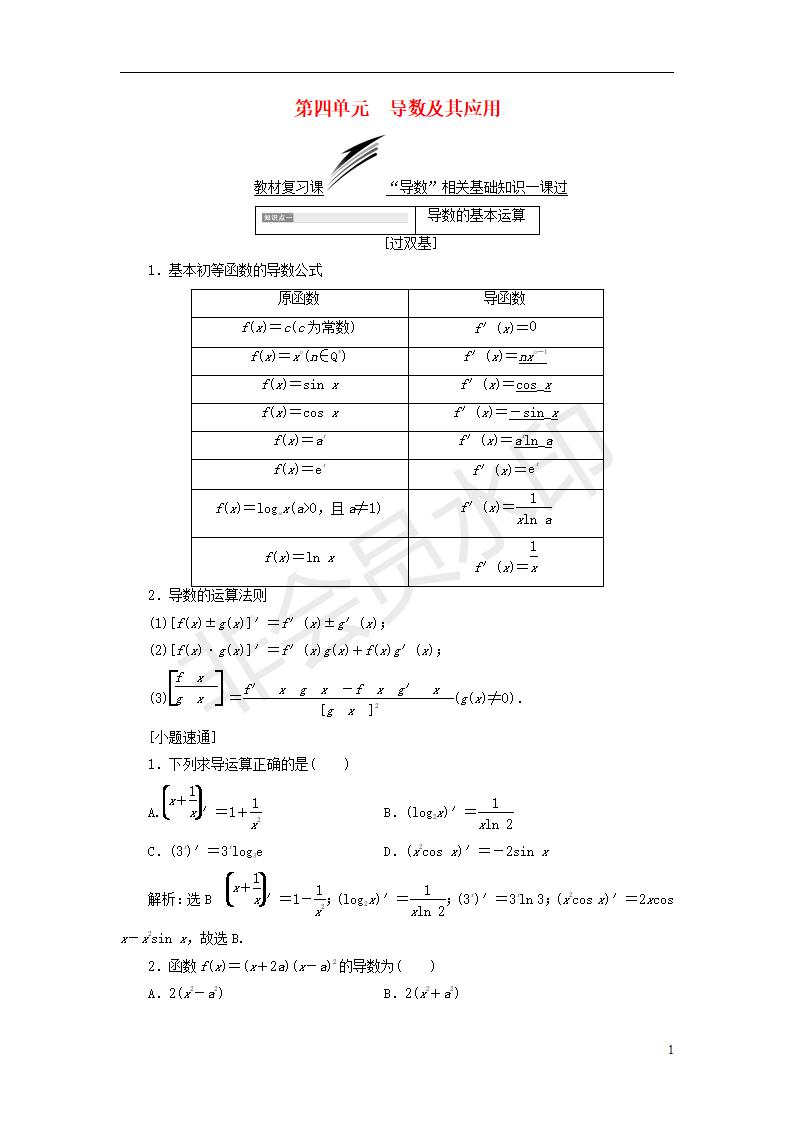 第四单元 导数及其应用
教材复习课 “导数”相关基础知识一课过
知识点一 导数的基本运算
[过双基]
1.基本初等函数的导数公式
原函数 导函数
f(x)=c(c为常数) f′(x)=0
f(x)=xⁿ(n∈Q*) f′(x)=nxⁿ⁻¹
f(x)=sin x f′(x)=cos_x
f(x)=cos x f′(x)=-sin_x
f(x)=aˣ f′(x)=aˣln_a
f(x)=eˣ f′(x)=eˣ
f(x)=logₐx(a>0,且a≠1) f′(x)=1/(xln a)
f(x)=ln x f′(x)=1/x
2.导数的运算法则
(1)[f(x)±g(x)]′=f′(x)±g′(x);
(2)[f(x)·g(x)]′=f′(x)g(x)+f(x)g′(x);
(3)[f x / g x]′=(f′ x g x -f x g′ x)/([g x ]²)(g(x)≠0).
[小题速通]
1.下列求导运算正确的是( )
A.(x+1/x)′=1+1/x² B.(log₂x)′=1/(xln 2)
C.(3ˣ)′=3ˣlog₃e D.(x²cos x)′=-2sin x
解析:选B (x+1/x)′=1-1/x²;(log₂x)′=1/(xln 2);(3ˣ)′=3ˣln 3;(x²cos x)′=2xcos
x-x²sin x,故选B.
2.函数f(x)=(x+2a)(x-a)²的导数为( )
A.2(x²-a²) B.2(x²+a²)
1
非会员水印